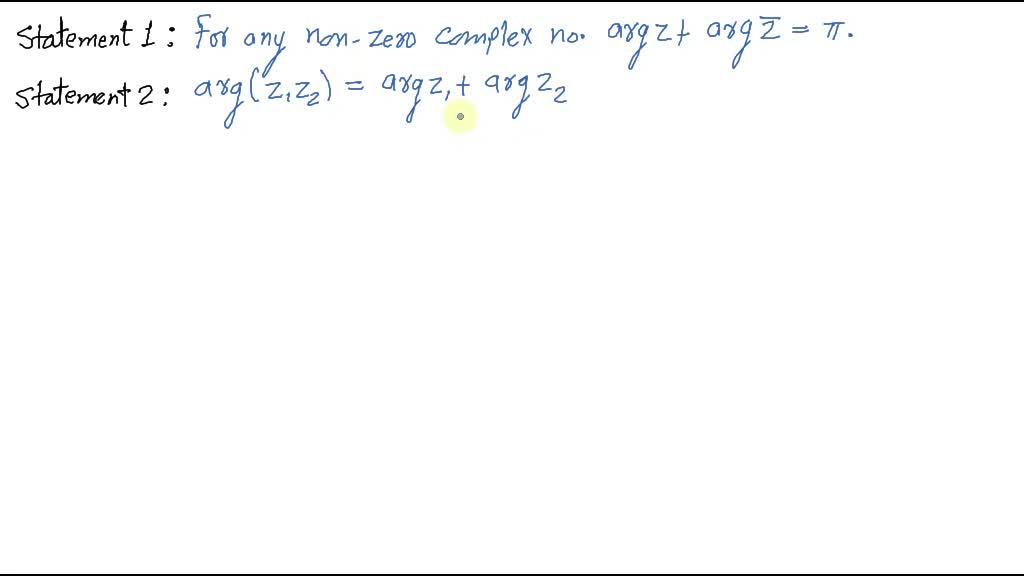 Statement 1 : For any non-zero complex no. arg z + arg z̅ = π.
Statement 2 : arg(z₁z₂) = arg z₁ + arg z₂